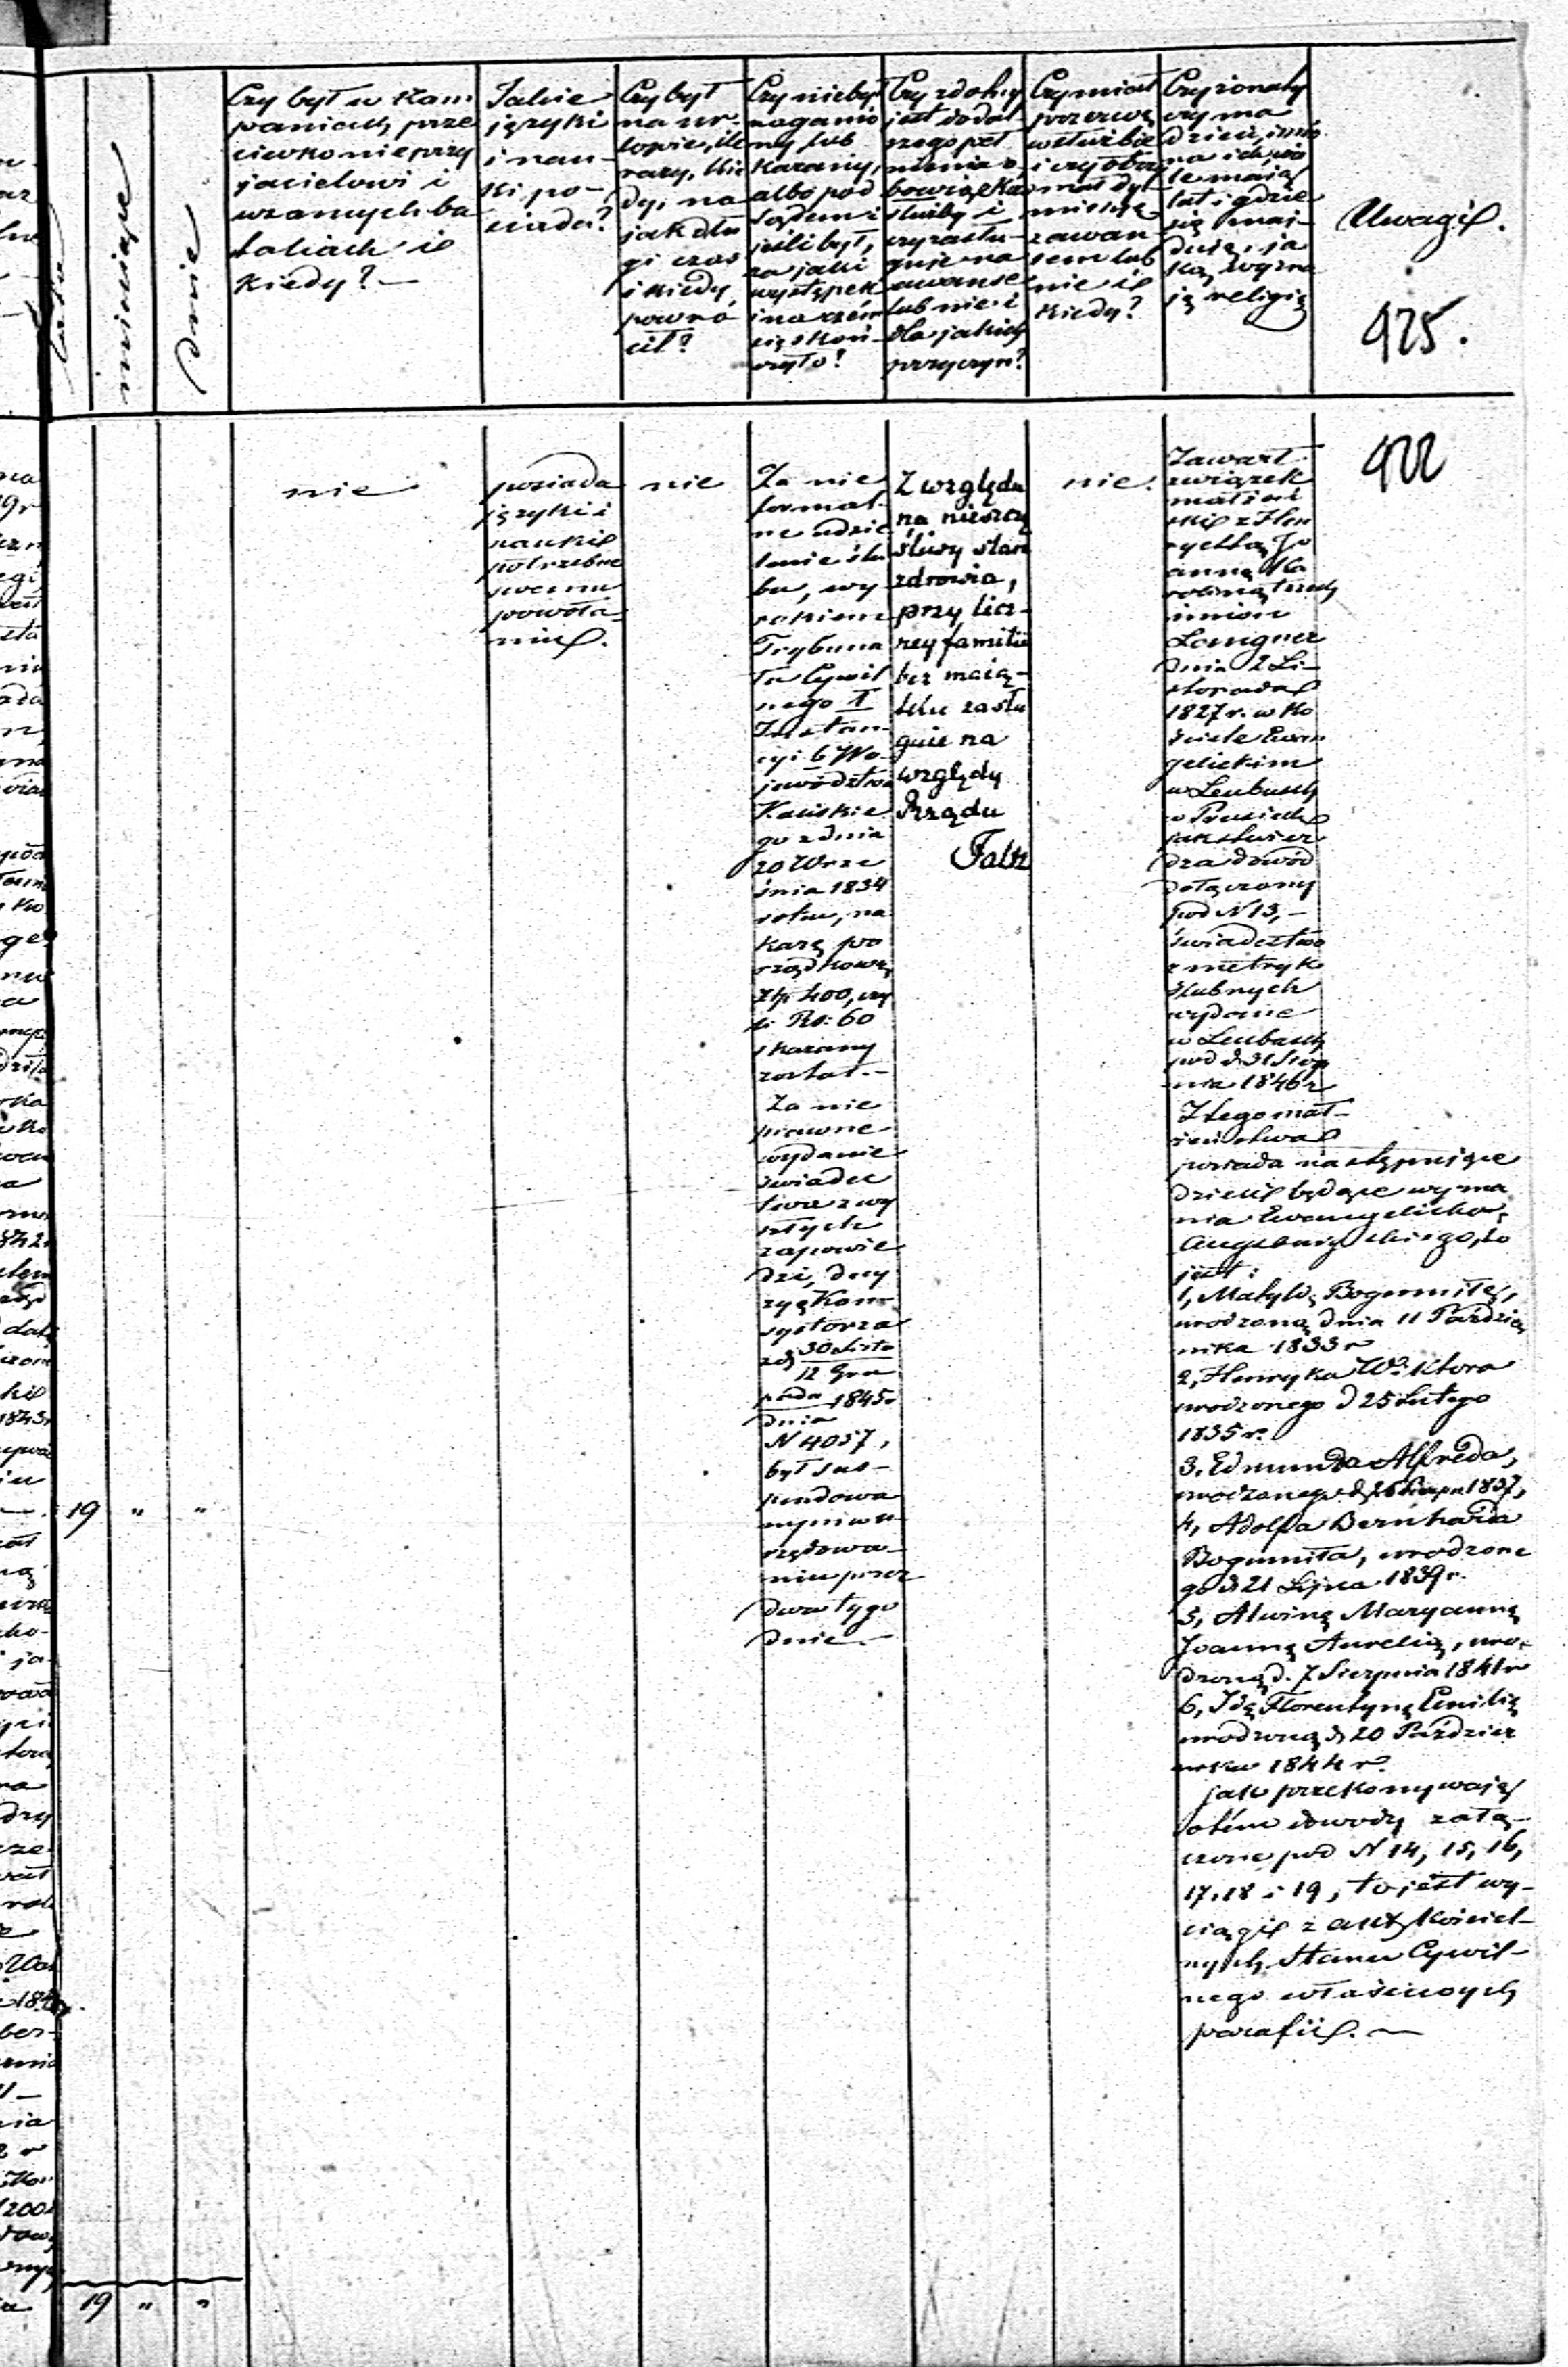 lata
miesiące
dnie
Czy był w Kam
paniach prze
ciwko nieprzy
jacielowi i
w samych ba
taliach i
Kiedy? —
Jakie
języki
i nau-
ki po-
siada?
Czy był
na ur-
lopie, ile
razy, kie
dy, na
jak dłu
gi czas
i kiedy
powró
cił?
Czy nieby
nagannio
ny lub
Karany,
albo pod
sądem i
jeśli był,
za jaki
występek
i na czém
się skoń
czyło?
Czy zdolny
jest do dal
szego peł
nienia o
bowiązków
służby i
czy zasłu-
guje na
awanse
lub nie i
dla jakich
przyczyn?
Czy miał
przerwę
w służbie
i czy otrzy
mał dy-
missię
z awan
sem lub
nie i
kiedy?
Czy żonaty
czy ma
dzieci, imio
na ich, wie
le mają
lat i gdzie
się znaj-
dują, ja
ką wyzna
ją religię
Uwagi.
425.
422
nie
posiada
języki i
nauki
potrzebne
swemu
powoła-
niu.
nie
Za nie
formal-
ne udzie
lenie ślu
bu, wy
rokiem
Trybuna
łu Cywil
nego I
Instan-
cyi b Wo-
jewództwa
Kaliskie
go z dnia
20 Wrze
śnia 1834
roku, na
karę po
rządkową
Złp 400, czy
li Rs: 60
skazany
został. —
Za nie
prawne
wydanie
świadec
twa z wy
szłych
zapowie
dzi, decy
zyą Kon-
systorza
z d. 30 Listo
12 Gru
pada 1845
dnia
N 4057,
był sus-
pendowa
nym w u-
rzędowa-
niu przez
dwa tygo
dnie. —
Z względu
na nieszczę
śliwy stan
zdrowia,
przy licz-
nej familii
bez mają-
tku zasłu
guie na
względy
Rządu
nie.
Zawarł
związek
małżeń
ski z Hen
ryettą Jo
anną Ka
roliną trzech
imion
Langner
dnia 2 Li-
stopada
1827 r. w Ko
ściele Ewan
gelickim
w Leubusch
w Prusiech
jak stwier
dza dowód
dołączony
pod N 13, —
świadectwo
z metryk
ślubnych
wydane
w Leubusch
pod d. 31 Sierp
nia 1846 r
Z tego mał-
żeństwa
posiada następujące
dzieci będące wyzna
nia Ewangelicko-
Augsburgskiego, to
jest:
1, Matyldę Bogumiłę,
urodzoną dnia 11 Paździer
nika 1833 r
2, Henryka Wiktora
urodzonego d 25 Lutego
1835 r.
3. Edmunda Alfreda,
urodzonego d. 26 Sierpn 1837,
4, Adolfa Bernharda
Bogumiła, urodzone
go d. 21 Lipca 1839 r.
5, Alwinę Maryannę
Joannę Aurelią, uro-
dzoną d. 7 Sierpnia 1841 r
6, Idę Florentynę Emilię
urodzoną d. 20 Paździer
nika 1844 r.
jak przekonywają
o tém dowody załą-
czone pod N 14, 15, 16,
17, 18 i 19, to jest wy-
ciągi z akt Kościel-
nych Stanu Cywil-
nego właściwych
parafii. —
19 " "
19 " "